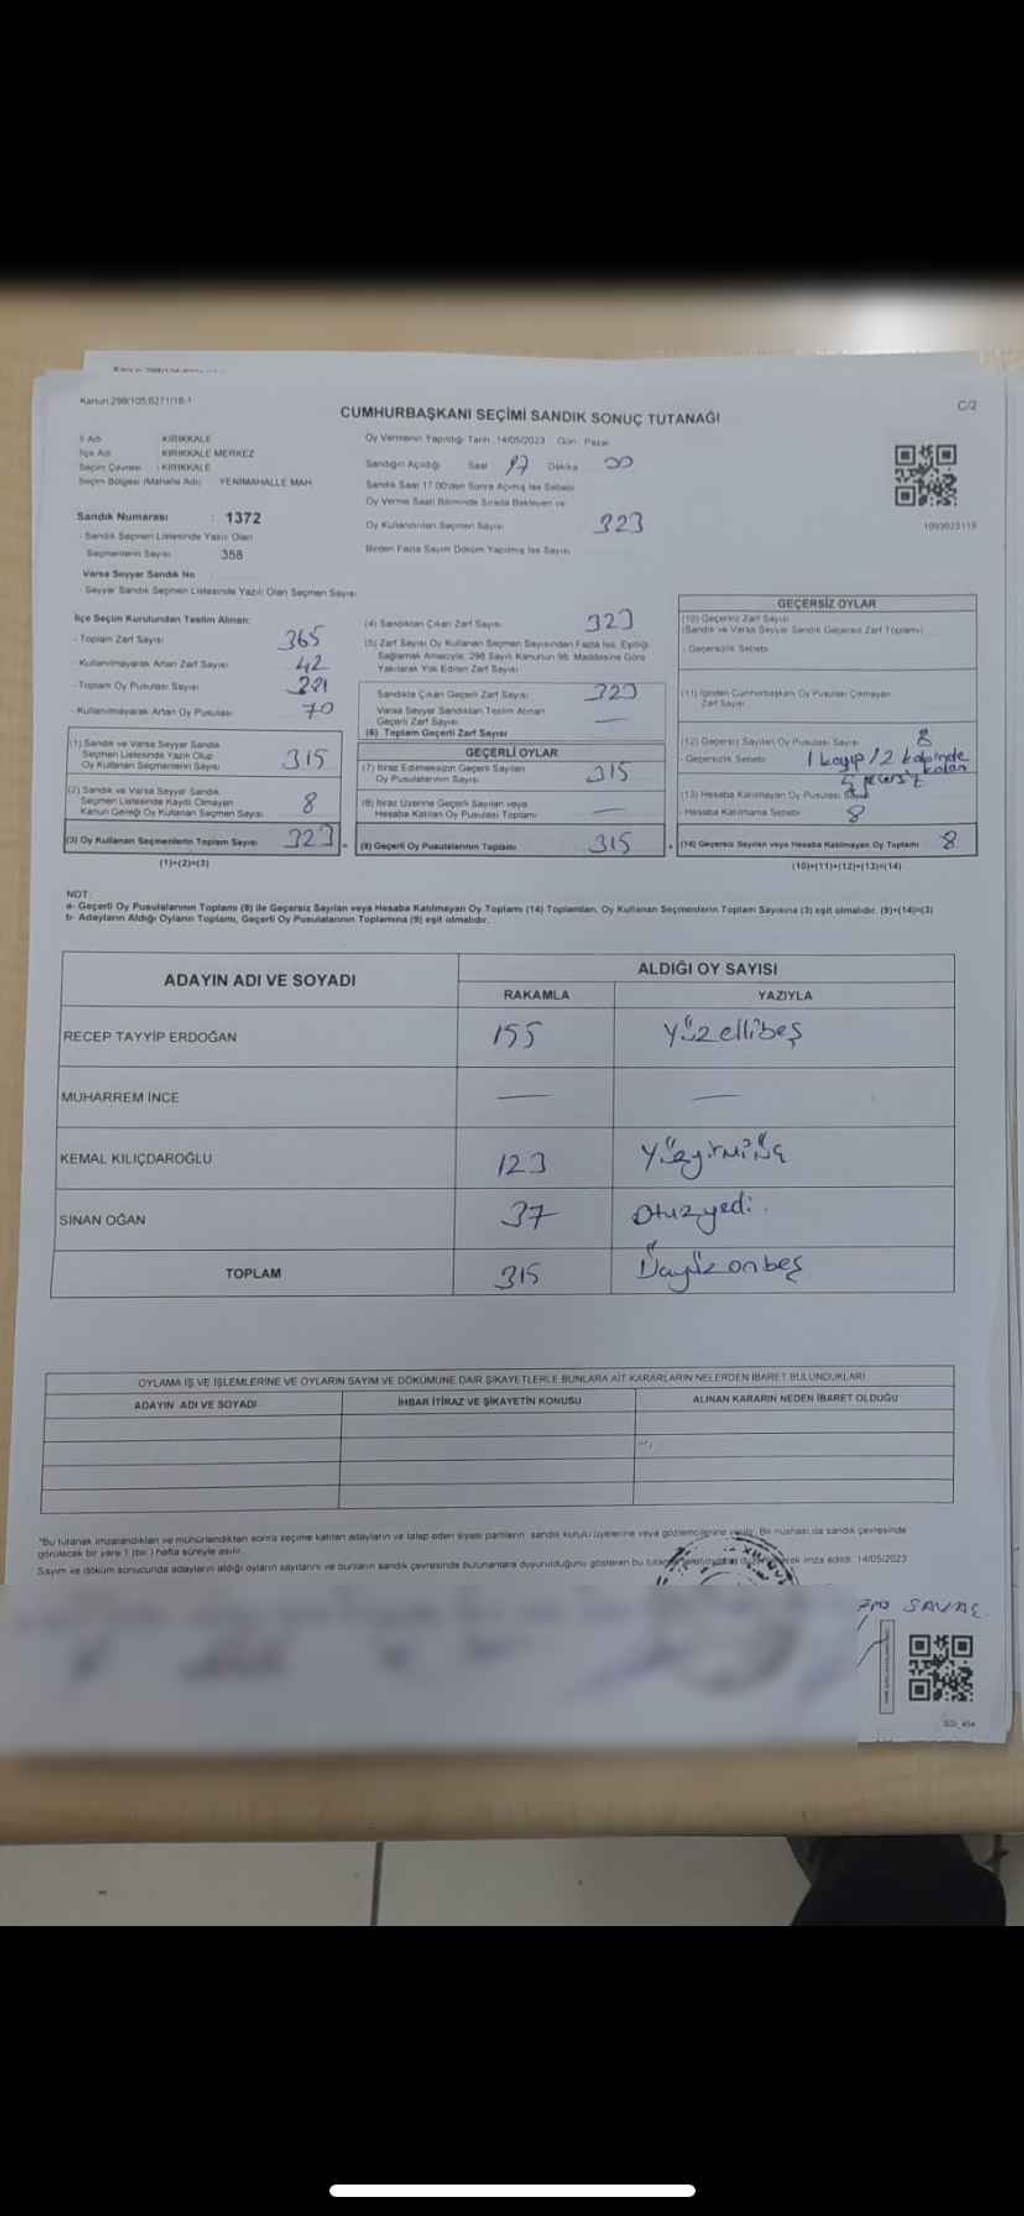 Kanun:298/105,6271/18-1
C/2
CUMHURBAŞKANI SEÇİMİ SANDIK SONUÇ TUTANAĞI
İl Adı KIRIKKALE
İlçe Adı KIRIKKALE MERKEZ
Seçim Çevresi : KIRIKKALE
Seçim Bölgesi (Mahalle Adı) YENİMAHALLE MAH
Sandık Numarası : 1372
Sandık Seçmen Listesinde Yazılı Olan
Seçmenlerin Sayısı 358
Varsa Seyyar Sandık No
Seyyar Sandık Seçmen Listesinde Yazılı Olan Seçmen Sayısı
Oy Vermenin Yapıldığı Tarih :14/05/2023 Gün : Pazar
Sandığın Açıldığı Saat 17 Dakika 00
Sandık Saat 17.00'den Sonra Açılmış İse Sebebi
Oy Verme Saati Bitiminde Sırada Bekleyen ve
Oy Kullandırılan Seçmen Sayısı 323
Birden Fazla Sayım Döküm Yapılmış İse Sayısı
1093023118
İlçe Seçim Kurulundan Teslim Alınan:
- Toplam Zarf Sayısı 365
- Kullanılmayarak Artan Zarf Sayısı 42
- Toplam Oy Pusulası Sayısı
- Kullanılmayarak Artan Oy Pusulası 70
(1) Sandık ve Varsa Seyyar Sandık
Seçmen Listesinde Yazılı Olup
Oy Kullanan Seçmenlerin Sayısı 315
(2) Sandık ve Varsa Seyyar Sandık
Seçmen Listesinde Kayıtlı Olmayan
Kanun Gereği Oy Kullanan Seçmen Sayısı 8
(3) Oy Kullanan Seçmenlerin Toplam Sayısı 323
(1)+(2)=(3)
(4) Sandıktan Çıkan Zarf Sayısı 323
(5) Zarf Sayısı Oy Kullanan Seçmen Sayısından Fazla İse, Eşitliği
Sağlamak Amacıyla, 298 Sayılı Kanunun 98. Maddesine Göre
Yakılarak Yok Edilen Zarf Sayısı
Sandıkta Çıkan Geçerli Zarf Sayısı 323
Varsa Seyyar Sandıktan Teslim Alınan
Geçerli Zarf Sayısı —
(6) Toplam Geçerli Zarf Sayısı
GEÇERLİ OYLAR
(7) İtiraz Edilmeksizin Geçerli Sayılan
Oy Pusulalarının Sayısı 315
(8) İtiraz Üzerine Geçerli Sayılan veya
Hesaba Katılan Oy Pusulası Toplamı —
(9) Geçerli Oy Pusulalarının Toplamı 315
GEÇERSİZ OYLAR
(10) Geçersiz Zarf Sayısı
(Sandık ve Varsa Seyyar Sandık Geçersiz Zarf Toplamı)
- Geçersizlik Sebebi
(11) İçinden Cumhurbaşkanı Oy Pusulası Çıkmayan
Zarf Sayısı
(12) Geçersiz Sayılan Oy Pusulası Sayısı 8
Geçersizlik Sebebi 1 kayıp / 2 kabinde
kalan
5 geçersiz
(13) Hesaba Katılmayan Oy Pusulası
- Hesaba Katılmama Sebebi 8
(14) Geçersiz Sayılan veya Hesaba Katılmayan Oy Toplamı 8
(10)+(11)+(12)+(13)=(14)
NOT:
a- Geçerli Oy Pusulalarının Toplamı (9) ile Geçersiz Sayılan veya Hesaba Katılmayan Oy Toplamı (14) Toplamları, Oy Kullanan Seçmenlerin Toplam Sayısına (3) eşit olmalıdır. (9)+(14)=(3)
b- Adayların Aldığı Oyların Toplamı, Geçerli Oy Pusulalarının Toplamına (9) eşit olmalıdır.
ADAYIN ADI VE SOYADI
ALDIĞI OY SAYISI
RAKAMLA YAZIYLA
RECEP TAYYİP ERDOĞAN 155 Yüzellibeş
MUHARREM İNCE — —
KEMAL KILIÇDAROĞLU 123 Yüzyirmiüç
SİNAN OĞAN 37 Otuzyedi.
TOPLAM 315 Üçyüzonbeş
OYLAMA İŞ VE İŞLEMLERİNE VE OYLARIN SAYIM VE DÖKÜMÜNE DAİR ŞİKAYETLERLE BUNLARA AİT KARARLARIN NELERDEN İBARET BULUNDUKLARI
ADAYIN ADI VE SOYADI İHBAR İTİRAZ VE ŞİKAYETİN KONUSU ALINAN KARARIN NEDEN İBARET OLDUĞU
"Bu tutanak imzalandıktan ve mühürlendikten sonra seçime katılan adayların ve talep eden siyasi partilerin sandık kurulu üyelerine veya gözlemcilerine verilir. Bir nushası da sandık çevresinde
görülecek bir yere 1 (bir) hafta süreyle asılır.
Sayım ve döküm sonucunda adayların aldığı oyların sayılarını ve bunların sandık çevresinde bulunanlara duyurulduğunu gösteren bu imza edildi. 14/05/2023